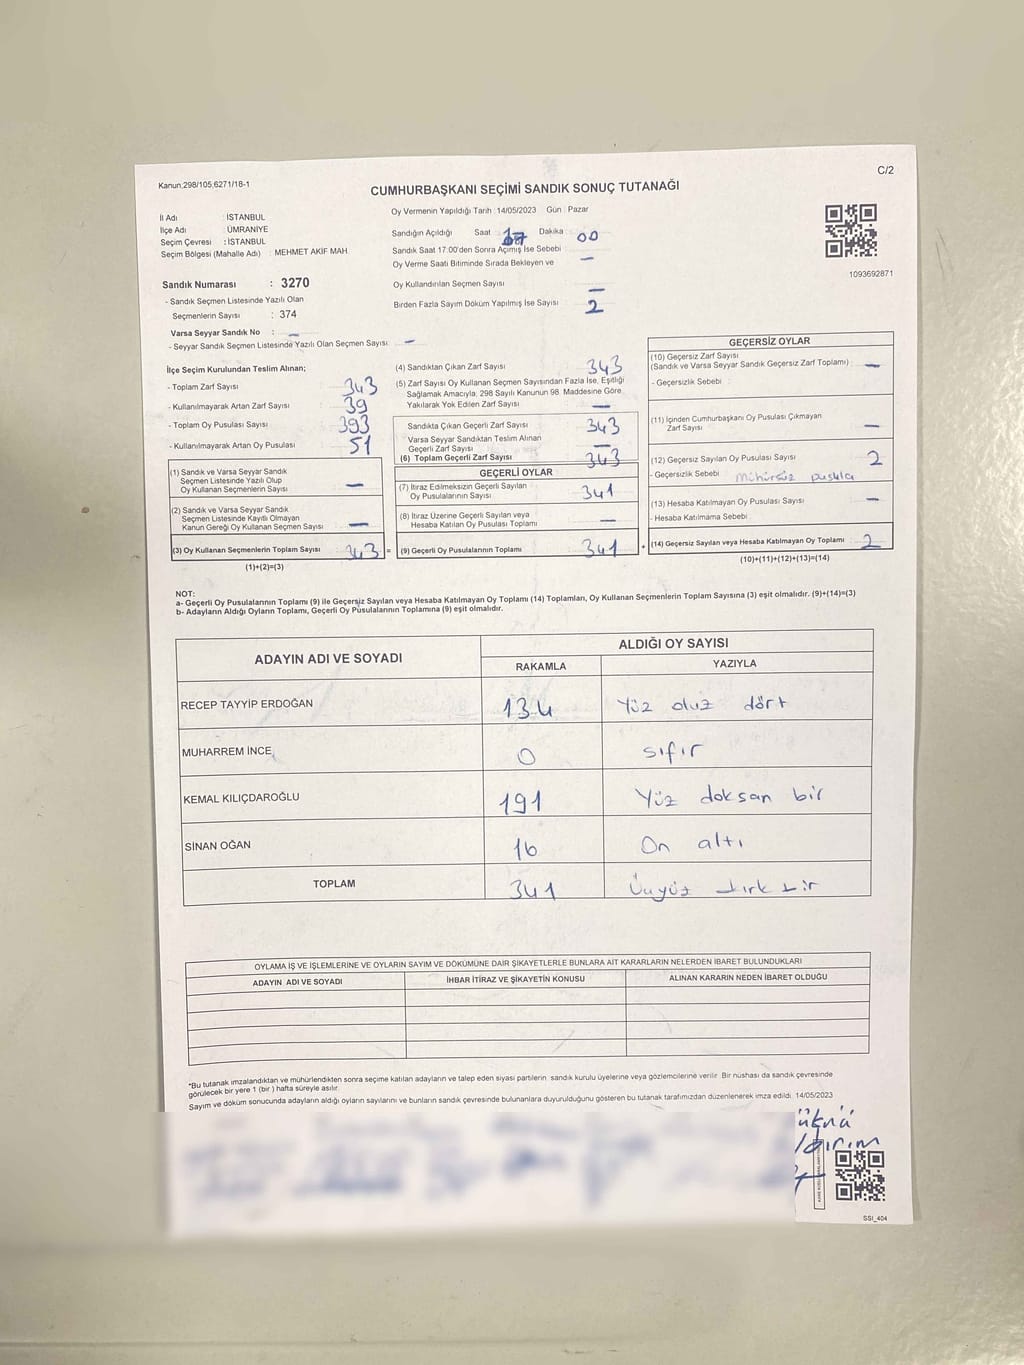 Kanun,298/105,6271/18-1
C/2
CUMHURBAŞKANI SEÇİMİ SANDIK SONUÇ TUTANAĞI
İl Adı : İSTANBUL
İlçe Adı : ÜMRANİYE
Seçim Çevresi : İSTANBUL
Seçim Bölgesi (Mahalle Adı) : MEHMET AKİF MAH.
Oy Vermenin Yapıldığı Tarih :14/05/2023 Gün : Pazar
Sandığın Açıldığı Saat 17 Dakika 00
Sandık Saat 17:00'den Sonra Açılmış İse Sebebi
Oy Verme Saati Bitiminde Sırada Bekleyen ve –
Oy Kullandırılan Seçmen Sayısı –
Birden Fazla Sayım Döküm Yapılmış İse Sayısı 2
1093692871
Sandık Numarası : 3270
- Sandık Seçmen Listesinde Yazılı Olan
Seçmenlerin Sayısı : 374
Varsa Seyyar Sandık No : –
- Seyyar Sandık Seçmen Listesinde Yazılı Olan Seçmen Sayısı: –
İlçe Seçim Kurulundan Teslim Alınan;
- Toplam Zarf Sayısı 343
- Kullanılmayarak Artan Zarf Sayısı 39
- Toplam Oy Pusulası Sayısı 393
- Kullanılmayarak Artan Oy Pusulası 51
(1) Sandık ve Varsa Seyyar Sandık
Seçmen Listesinde Yazılı Olup
Oy Kullanan Seçmenlerin Sayısı –
(2) Sandık ve Varsa Seyyar Sandık
Seçmen Listesinde Kayıtlı Olmayan
Kanun Gereği Oy Kullanan Seçmen Sayısı –
(3) Oy Kullanan Seçmenlerin Toplam Sayısı 343 =
(1)+(2)=(3)
(4) Sandıktan Çıkan Zarf Sayısı 343
(5) Zarf Sayısı Oy Kullanan Seçmen Sayısından Fazla İse, Eşitliği
Sağlamak Amacıyla; 298 Sayılı Kanunun 98. Maddesine Göre
Yakılarak Yok Edilen Zarf Sayısı –
Sandıkta Çıkan Geçerli Zarf Sayısı 343
Varsa Seyyar Sandıktan Teslim Alınan
Geçerli Zarf Sayısı –
(6) Toplam Geçerli Zarf Sayısı 343
GEÇERLİ OYLAR
(7) İtiraz Edilmeksizin Geçerli Sayılan
Oy Pusulalarının Sayısı 341
(8) İtiraz Üzerine Geçerli Sayılan veya
Hesaba Katılan Oy Pusulası Toplamı –
(9) Geçerli Oy Pusulalarının Toplamı 341 +
GEÇERSİZ OYLAR
(10) Geçersiz Zarf Sayısı
(Sandık ve Varsa Seyyar Sandık Geçersiz Zarf Toplamı) : –
- Geçersizlik Sebebi :
(11) İçinden Cumhurbaşkanı Oy Pusulası Çıkmayan
Zarf Sayısı –
(12) Geçersiz Sayılan Oy Pusulası Sayısı 2
- Geçersizlik Sebebi mühürsüz pusula
(13) Hesaba Katılmayan Oy Pusulası Sayısı –
- Hesaba Katılmama Sebebi
(14) Geçersiz Sayılan veya Hesaba Katılmayan Oy Toplamı 2
(10)+(11)+(12)+(13)=(14)
NOT:
a- Geçerli Oy Pusulalarının Toplamı (9) ile Geçersiz Sayılan veya Hesaba Katılmayan Oy Toplamı (14) Toplamları, Oy Kullanan Seçmenlerin Toplam Sayısına (3) eşit olmalıdır. (9)+(14)=(3)
b- Adayların Aldığı Oyların Toplamı, Geçerli Oy Pusulalarının Toplamına (9) eşit olmalıdır.
ADAYIN ADI VE SOYADI
ALDIĞI OY SAYISI
RAKAMLA YAZIYLA
RECEP TAYYİP ERDOĞAN 134 Yüz otuz dört
MUHARREM İNCE 0 sıfır
KEMAL KILIÇDAROĞLU 191 Yüz doksan bir
SİNAN OĞAN 16 On altı
TOPLAM 341 Üçyüz kırk bir
OYLAMA İŞ VE İŞLEMLERİNE VE OYLARIN SAYIM VE DÖKÜMÜNE DAİR ŞİKAYETLERLE BUNLARA AİT KARARLARIN NELERDEN İBARET BULUNDUKLARI
ADAYIN ADI VE SOYADI İHBAR İTİRAZ VE ŞİKAYETİN KONUSU ALINAN KARARIN NEDEN İBARET OLDUĞU
*Bu tutanak imzalandıktan ve mühürlendikten sonra seçime katılan adayların ve talep eden siyasi partilerin sandık kurulu üyelerine veya gözlemcilerine verilir. Bir nüshası da sandık çevresinde
görülecek bir yere 1 (bir ) hafta süreyle asılır.
Sayım ve döküm sonucunda adayların aldığı oyların sayılarını ve bunların sandık çevresinde bulunanlara duyurulduğunu gösteren bu tutanak tarafımızdan düzenlenerek imza edildi. 14/05/2023
SSI_404